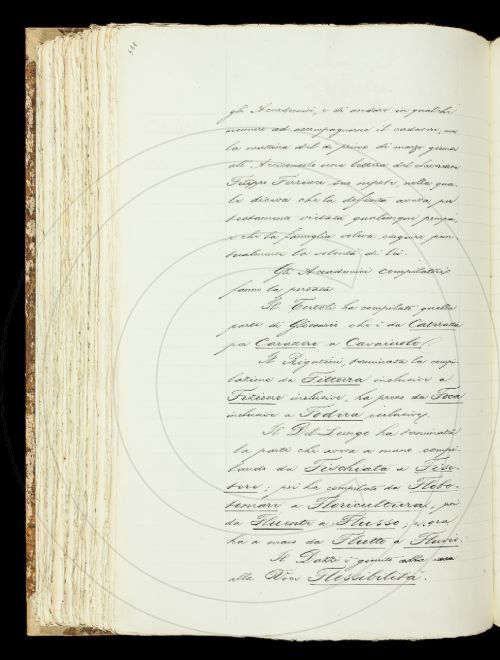 gli Accademici, e di andare in qualche
numero ad accompagnarne il cadavere, ma
la mattina del dì primo di marzo giunse
all' Arciconsolo una lettera del
Filippo sue nipote, nella qua-
le diceva che la defunta aveva per
testamento vietata qualunque pompa,
e che la famiglia voleva eseguire pun-
tualmente la volontà di lei.
Gli Accademici compilatori
fanno la portata
Il Tortoli ha compilato quella
parte di Glossario che è da Caterratta
per Cavatore a
Il Rigutini, terminata la compi-
lazione da Fittura inclusive a
Fizione inclusive, ha preso da Foca
inclusive a Fodera, esclusive.
Il Del-Lungo ha terminata
la parte che aveva a mano compi-
lando da Fischiata a
poi ha compilato da Flebo-
tomare a Floricultura, poi
da Fluente a Flusso; ed ora
ha a mano da Flutto a
Il Dazzi è giunto
alla Voce Flessibilità.